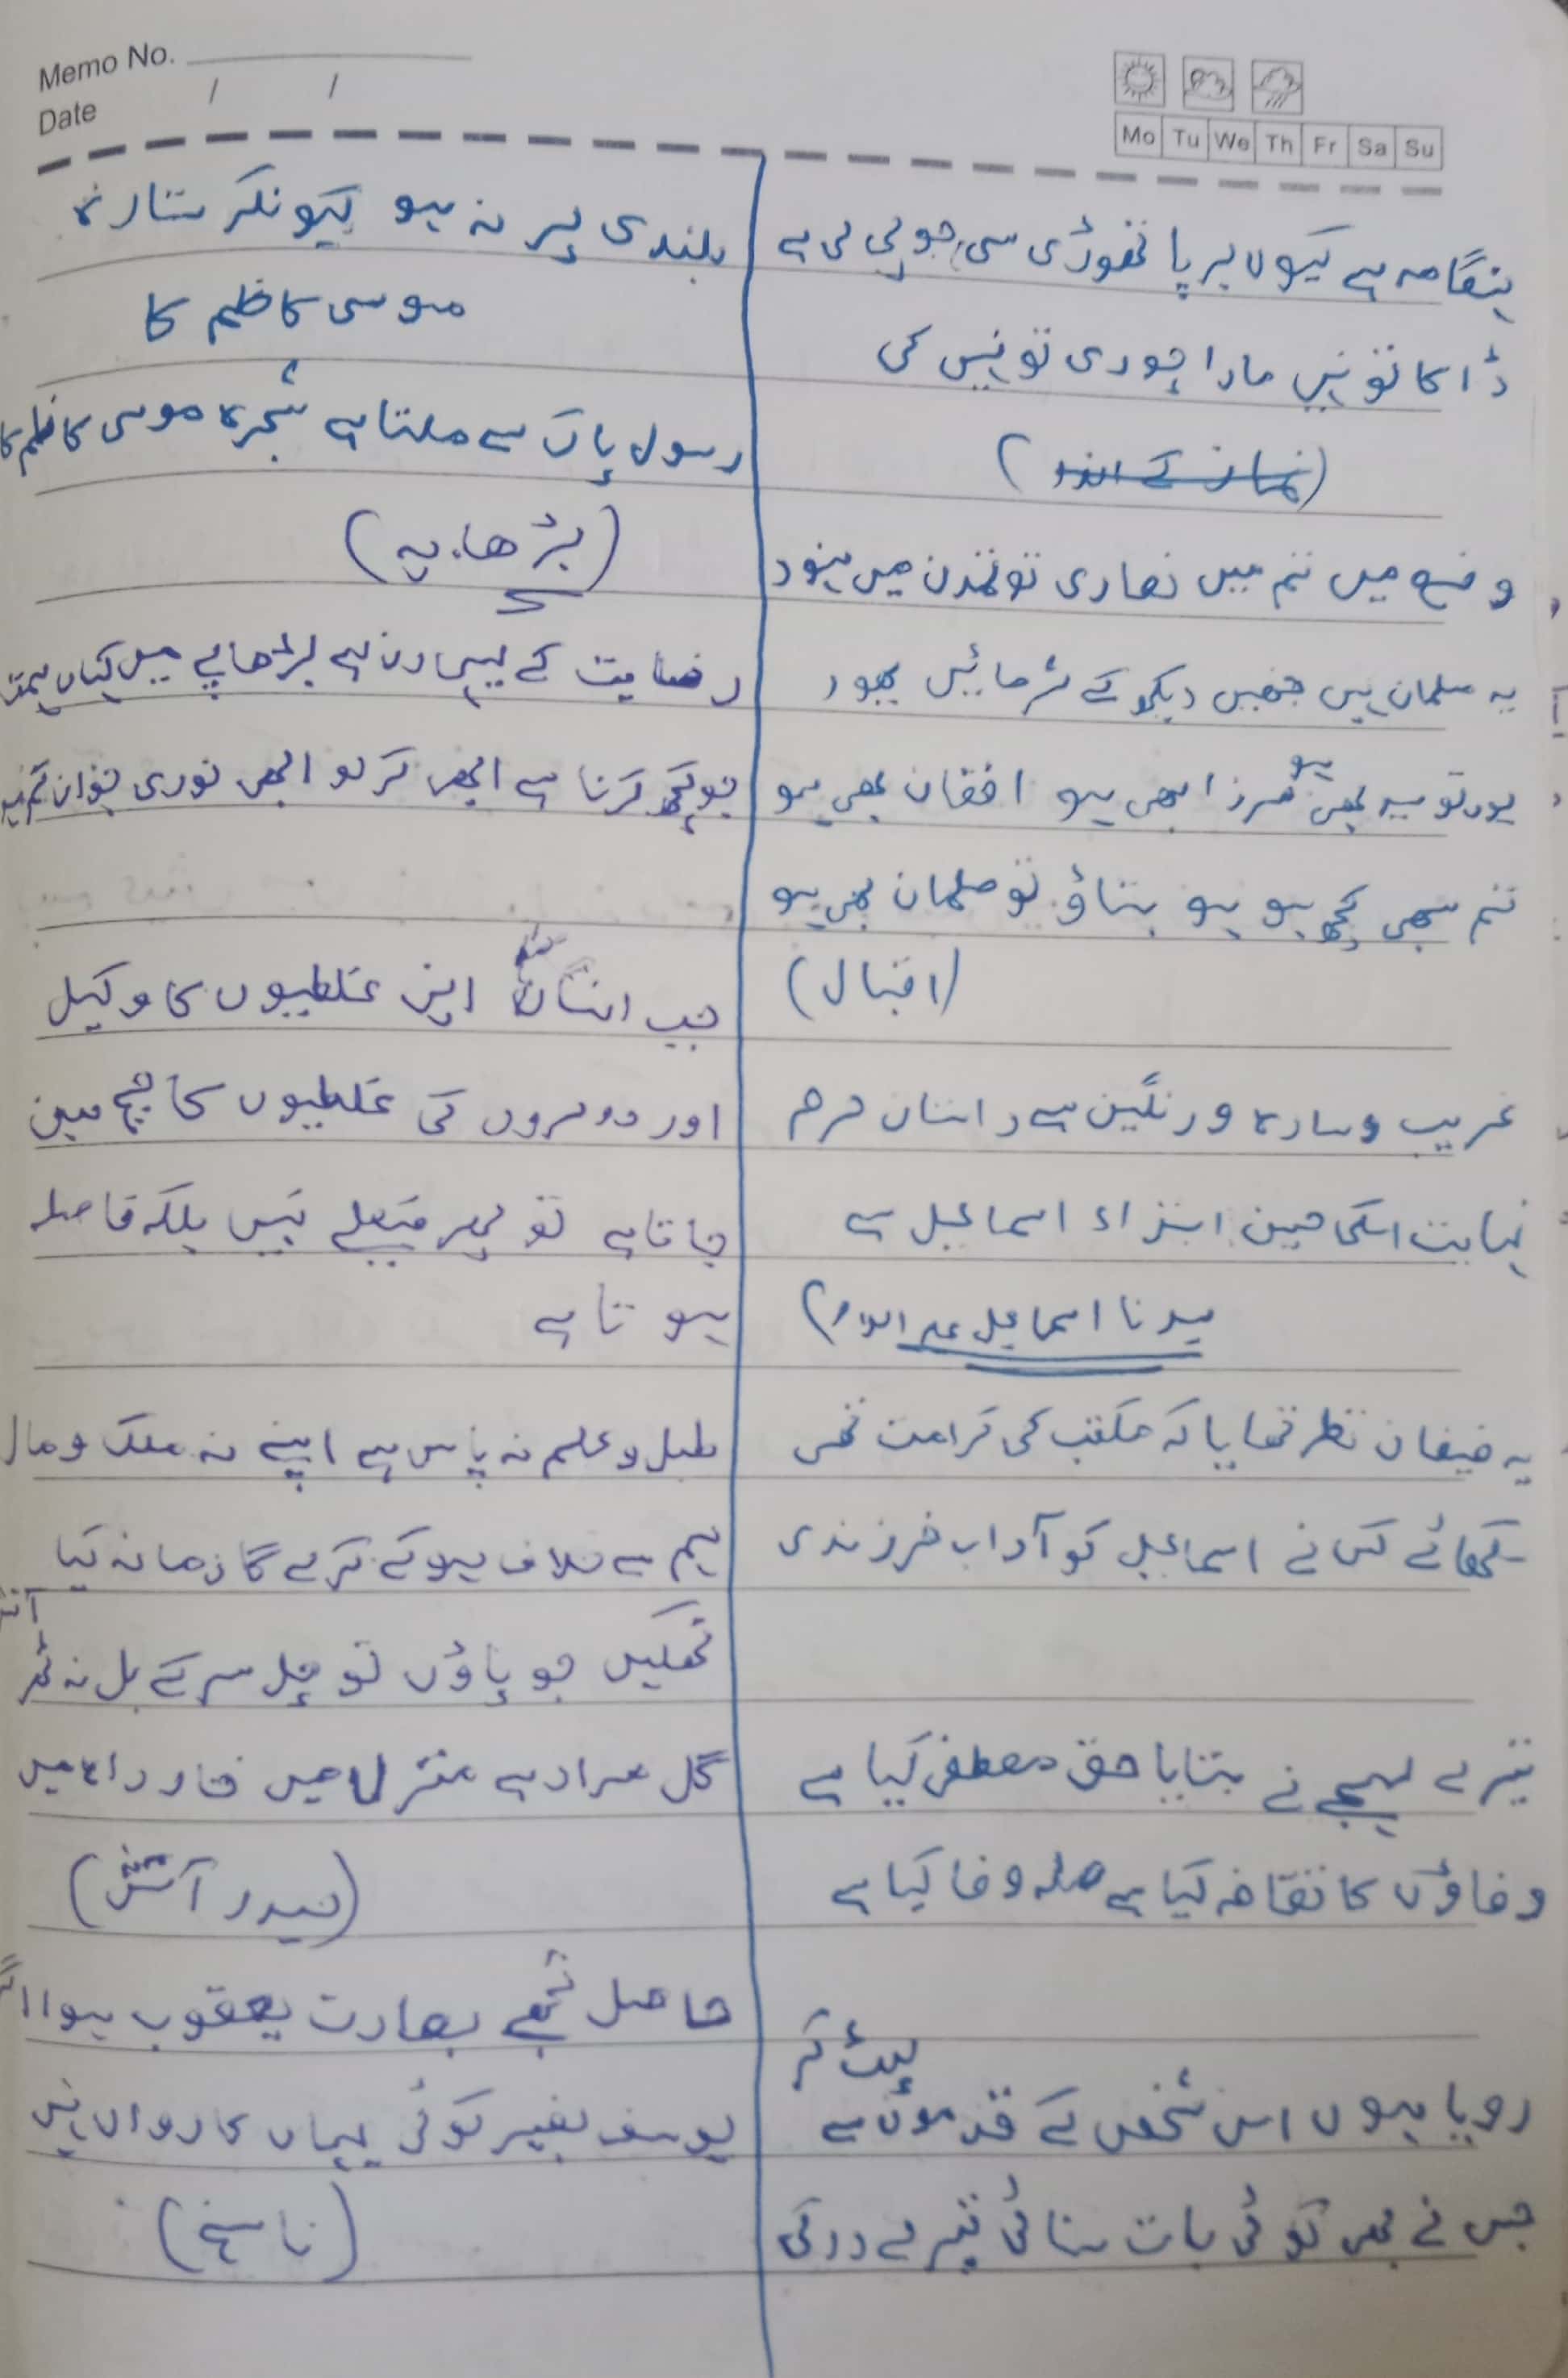 Memo No.
Date / /
Mo Tu We Th Fr Sa Su
ہنگامہ ہے کیوں برپا تھوڑی سی جو پی لی ہے
ڈاکا تو نہیں مارا چوری تو نہیں کی
وضع میں تم ہیں نصاری تو تمدن میں ہنود
یہ مسلمان ہیں جنھیں دیکھ کے شرمائیں یہود
یوں تو سید بھی ہو مرزا بھی ہو افغان بھی ہو
تم سبھی کچھ ہو ہو بتاؤ تو مسلمان بھی ہو
(اقبال)
غریب و سادہ و رنگین ہے داستان حرم
نہایت اسکی حسین ابتداء اسماعیل ہے
سیدنا اسماعیل علیہ السلام)
یہ فیضان نظر تھا یا کہ مکتب کی کرامت تھی
سکھائے کس نے اسماعیل کو آداب فرزندی
تیرے لہجے نے بتایا حق مصطفی کیا ہے
وفاؤں کا تقاضہ کیا ہے صلہ وفا کیا ہے
رویا ہوں اس شخص کے قدموں سے لپٹ کر
جس نے بھی کوئی بات سنائی تیرے در کی
بلندی پر نہ ہو کیونکر ستارہ
موسی کاظم کا
رسول پاک سے ملتا ہے شجرہ موسی کاظم کا
(بڑھاپہ)
ریاضت کے یہی دن ہے بڑھاپے میں کہاں ہمت
جو کچھ کرنا ہے ابھی کر لو ابھی نوری جواں تم ہو
جب انسان اپنی غلطیوں کا وکیل
اور دوسروں کی غلطیوں کا جج بن
جاتا ہے تو پھر فیصلے نہیں بلکہ فاصلہ
ہوتا ہے
طبل و علم نہ پاس ہے اپنے نہ ملک و مال
ہم سے خلاف ہو کے کرے گا زمانہ کیا
تھکیں جو پاؤں تو چل سر کے بل نہ ٹھر
گل مراد ہے منزل میں خار راہ میں
(حیدر آتش)
حاصل تجھے بصارت یعقوب ہو اگر
یوسف بغیر کوئی یہاں کارواں نہیں
(ناسخ)